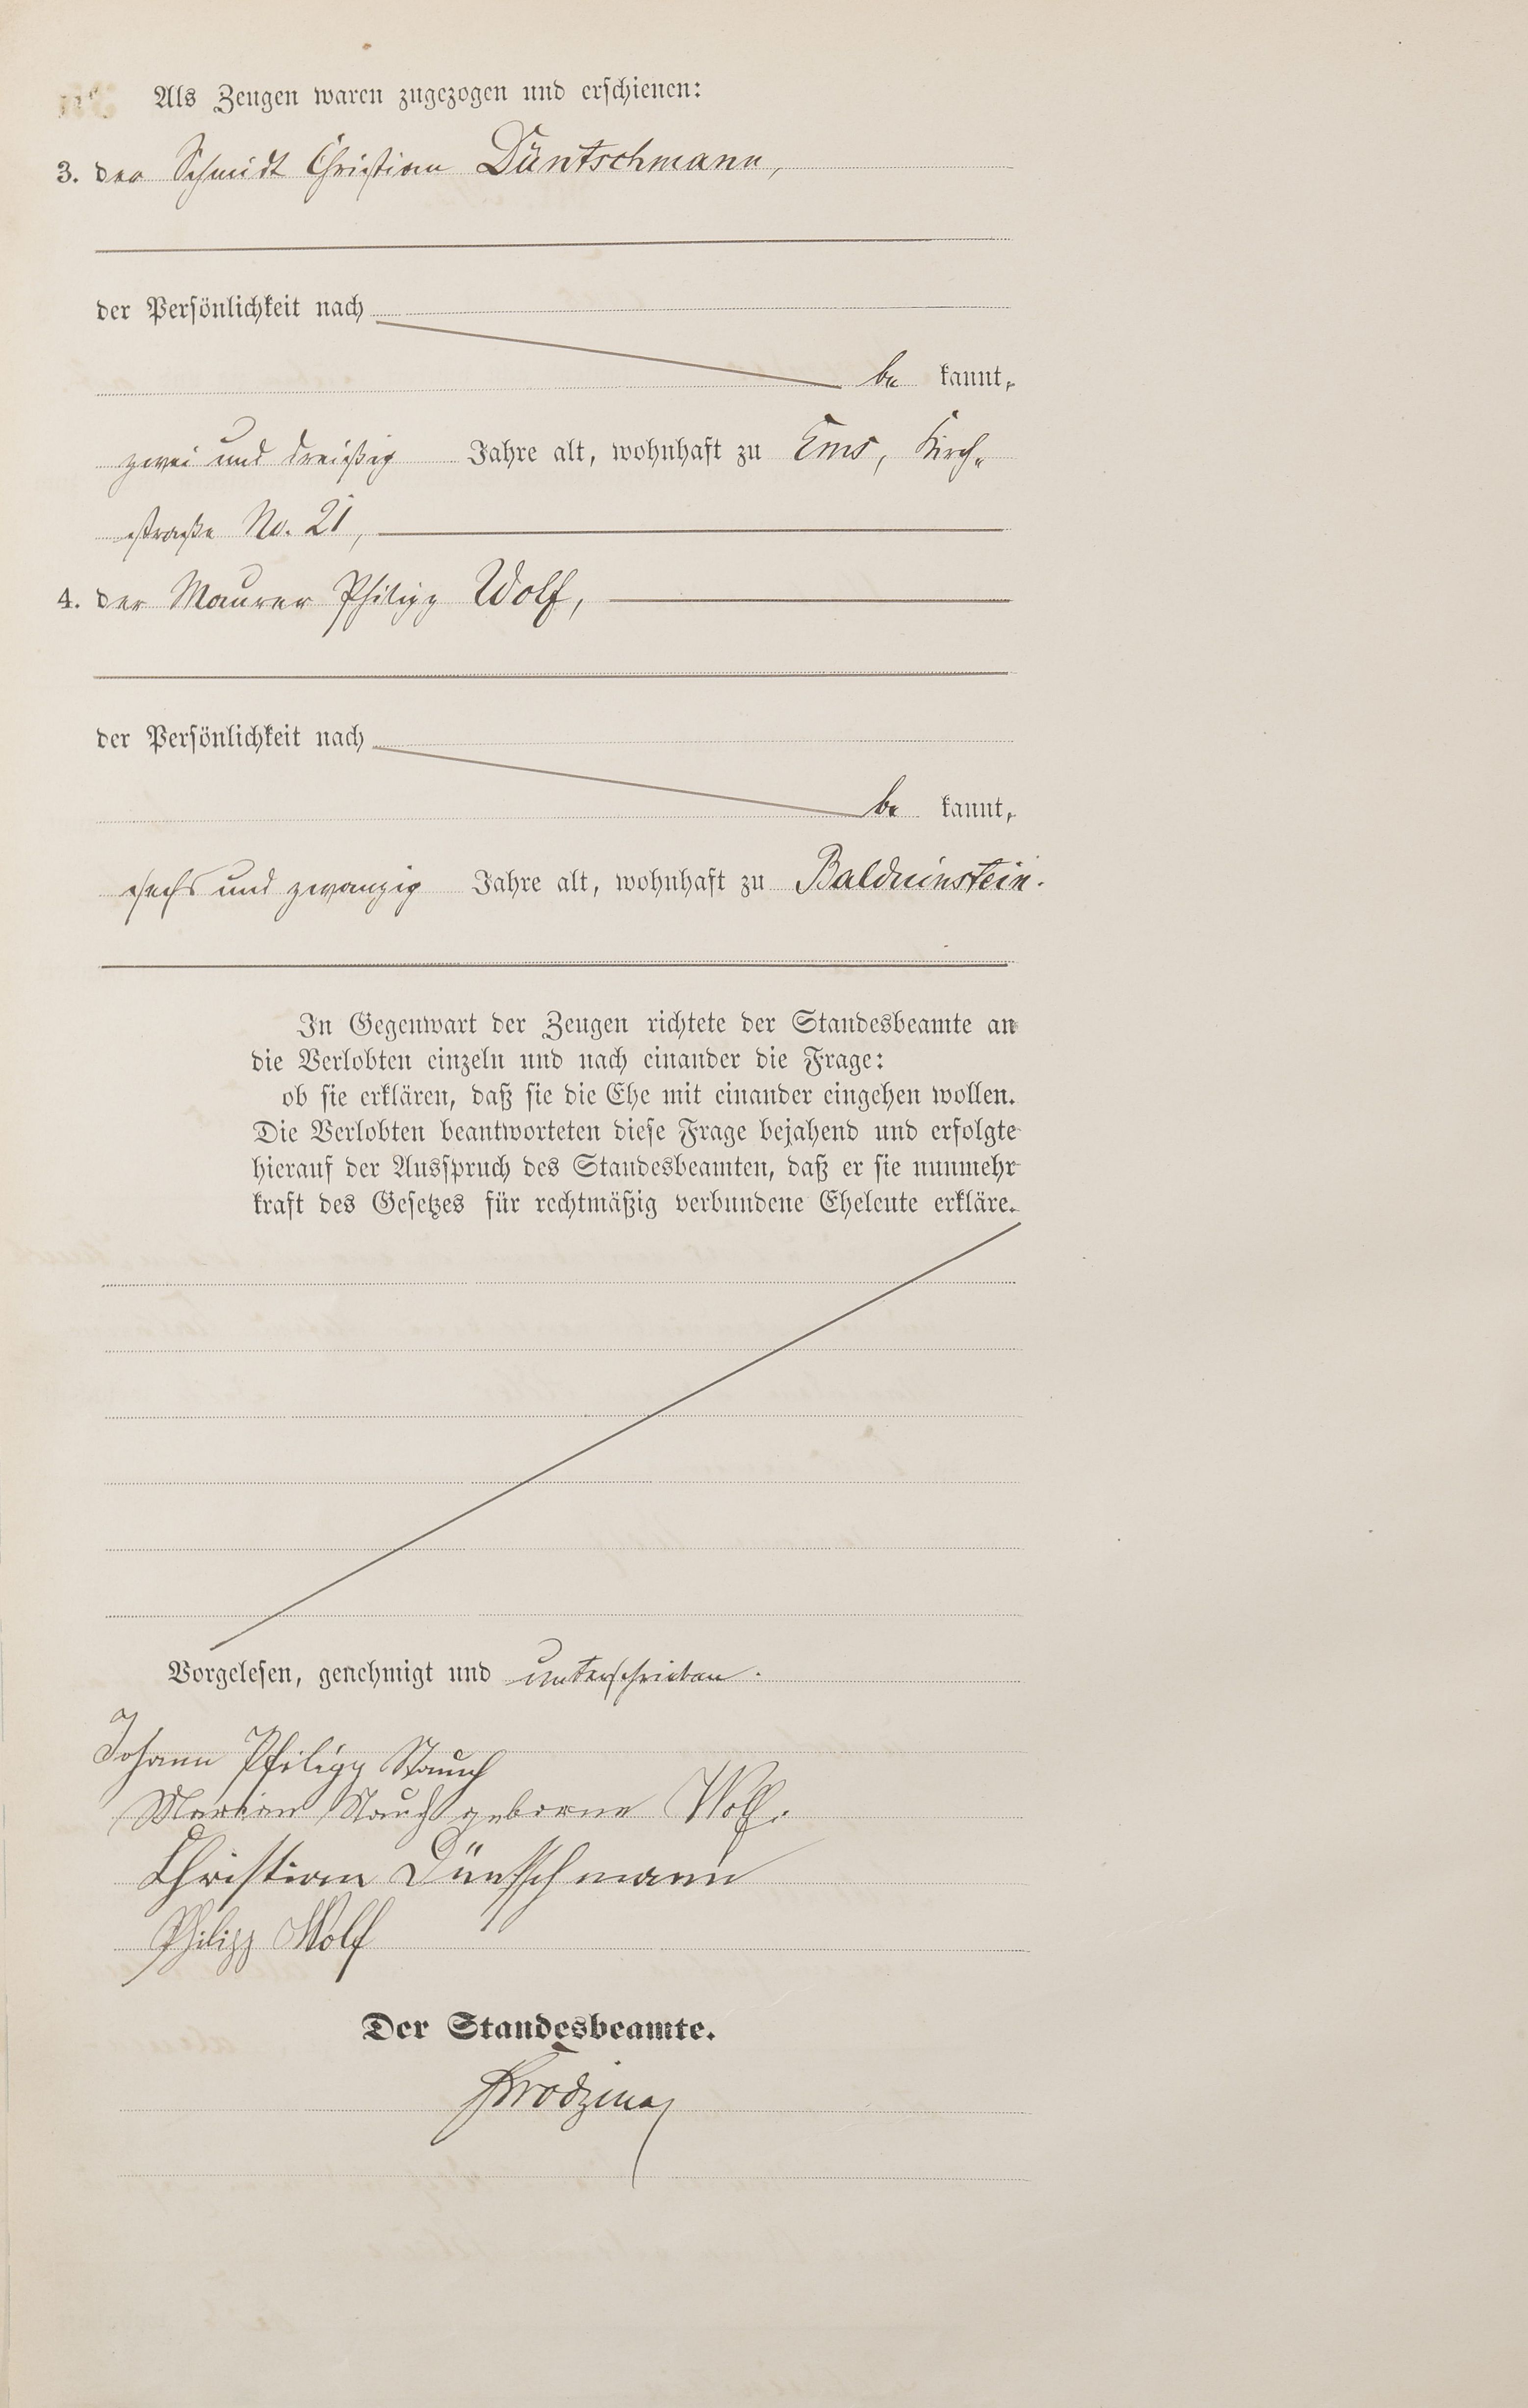 Als Zeugen waren zugezogen und erschienen:
3. der Schmidt Christian Düntschmann,
der Persönlichkeit nach
be kannt,
zwei und dreißig Jahre alt, wohnhaft zu Ems, Kirch-
straße No. 21,
4. der Maurer Philipp Wolf,
der Persönlichkeit nach
be kannt,
sechs und zwanzig Jahre alt, wohnhaft zu Balduinstein.
In Gegenwart der Zeugen richtete der Standesbeamte an
die Verlobten einzeln und nach einander die Frage:
ob sie erklären, daß sie die Ehe mit einander eingehen wollen.
Die Verlobten beantworteten diese Frage bejahend und erfolgte
hierauf der Ausspruch des Standesbeamten, daß er sie nunmehr
kraft des Gesetzes für rechtmäßig verbundene Eheleute erkläre.
Vorgelesen, genehmigt und unterschrieben.
Johann Philipp Stauch
Stauch geborne Wolf.
Christian Düntschmann
Philipp Wolf
Der Standesbeamte.